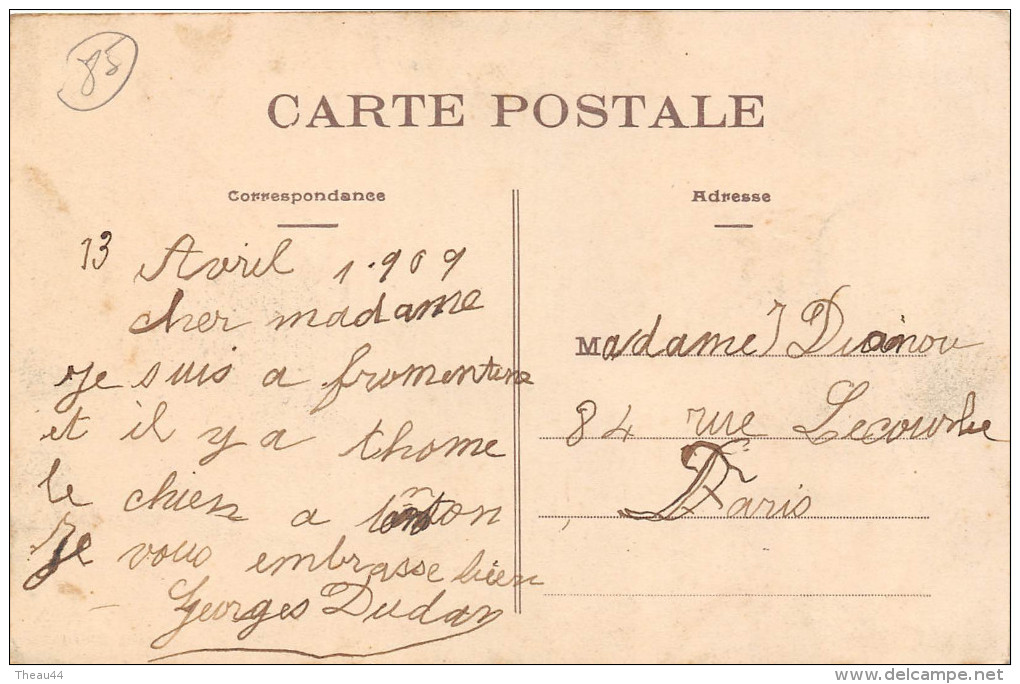 85
CARTE POSTALE
Correspondance
13 Avril 1.909
cher madame
je suis a fromentine
et il y a thome
le chien a tonton
Je vous embrasse bien
Georges Dudan
Adresse
Madame
84 rue Lecourbe
Paris
Theau44
delcampe.net